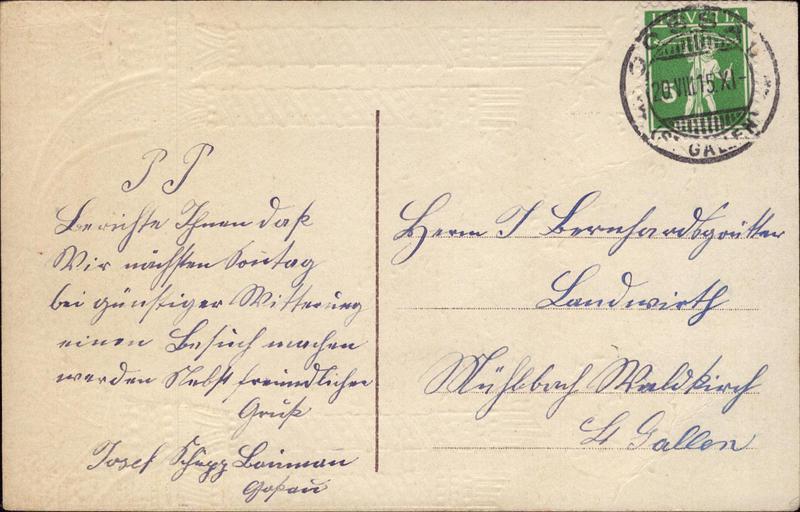 HELVETIA
5
GOSSAU
20.VIII.15.XI-
(ST. GALLEN)
P P
Berichte Ihnen daß
Wir nächsten Sontag
bei günstiger Witterung
einen Besuch machen
werden Nebst freundlicher
Gruß
Josef Schepp Baumann
Goßau
Herrn J Bernhardsgrütter
Landwirth
Mühlbach Waldkirch
St Gallen